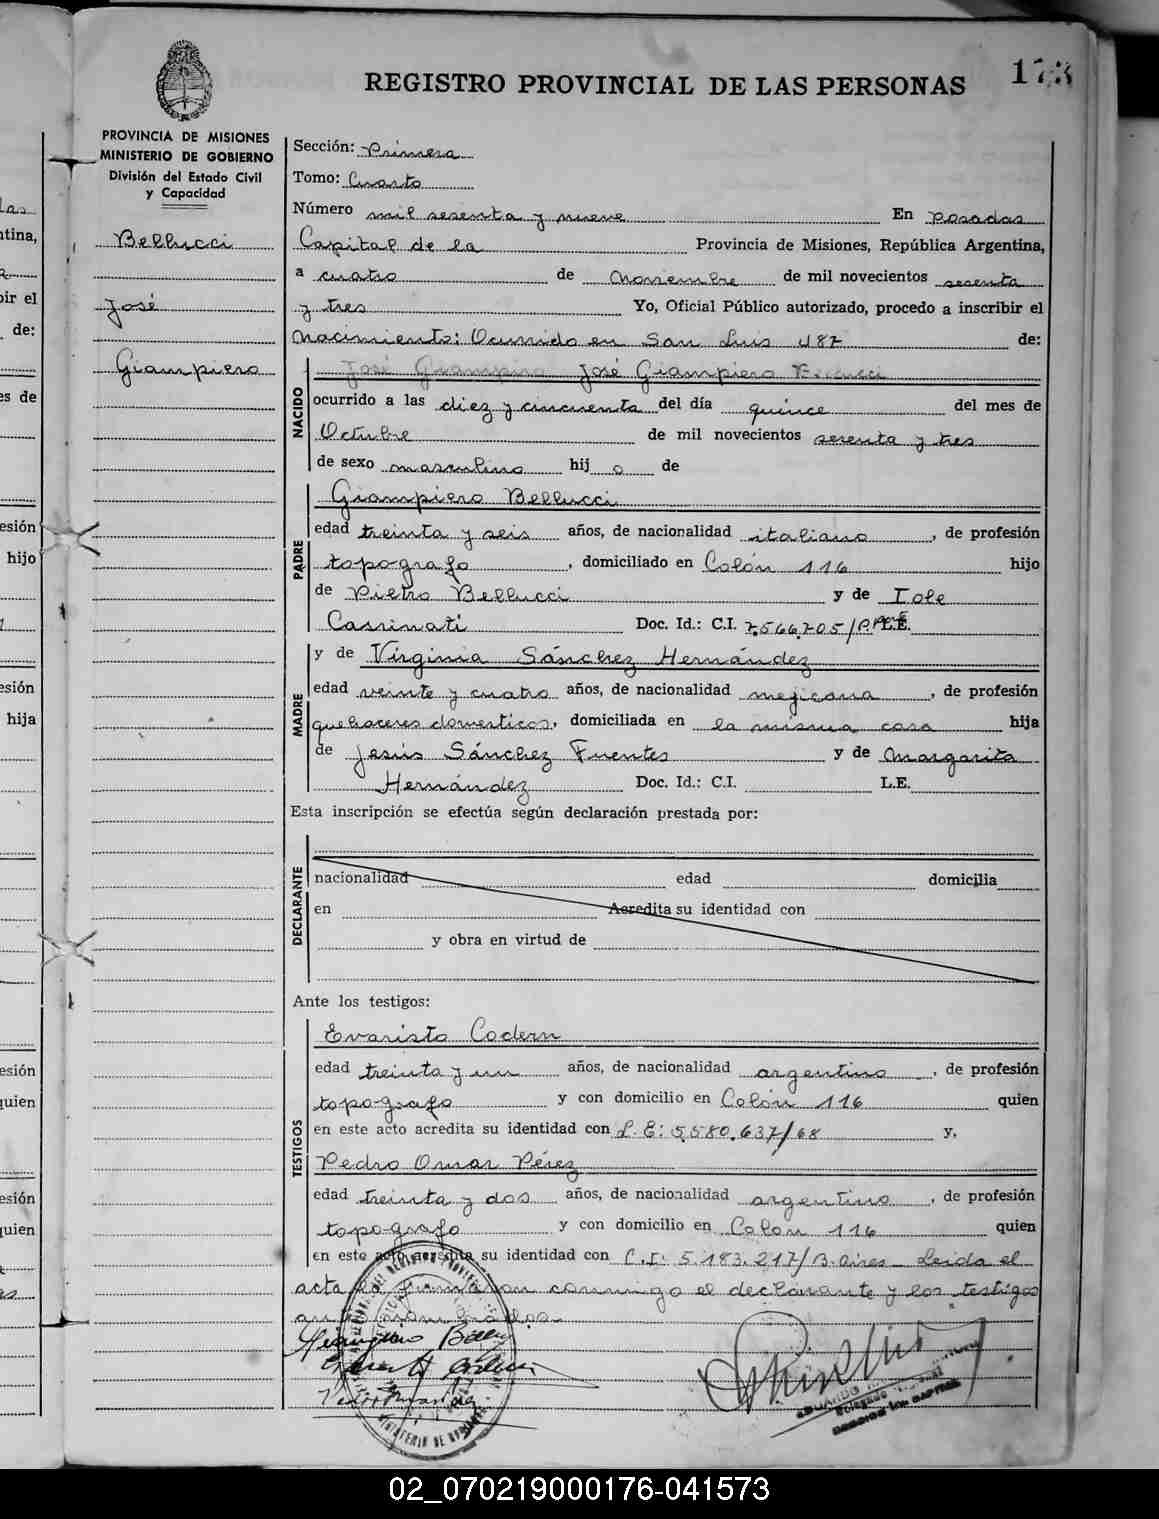 REGISTRO PROVINCIAL DE LAS PERSONAS
PROVINCIA DE MISIONES
MINISTERIO DE GOBIERNO
División del Estado Civil
y Capacidad
Bellucci
José
Giampiero
Sección: Primera
Tomo: Cuarto
Número mil sesenta y nueve En Posadas
Capital de la Provincia de Misiones, República Argentina,
a cuatro de Noviembre de mil novecientos sesenta
y tres Yo, Oficial Público autorizado, procedo a inscribir el
nacimiento: Ocurrido en San Luis 487 de:
José Giampiero José Giampiero Bellucci
NACIDO
ocurrido a las diez y cincuenta del día quince del mes de
Octubre de mil novecientos sesenta y tres
de sexo masculino hij o de
PADRE
Giampiero Bellucci
edad treinta y seis años, de nacionalidad italiano, de profesión
topografo, domiciliado en Colón 116 hijo
de Pietro Bellucci y de Iole
Cassinati Doc. Id.: C.I. 7.566.705/P. L.E.
MADRE
y de Virginia Sánchez Hernández
edad veinte y cuatro años, de nacionalidad mejicana, de profesión
quehaceres domesticos, domiciliada en la misma casa hija
de Jesús Sánchez Fuentes y de Margarita
Hernández Doc. Id.: C.I. L.E.
Esta inscripción se efectúa según declaración prestada por:
DECLARANTE
nacionalidad edad domicilia
en Acredita su identidad con
y obra en virtud de
Ante los testigos:
TESTIGOS
Evaristo Codern
edad treinta y un años, de nacionalidad argentino, de profesión
topografo y con domicilio en Colón 116 quien
en este acto acredita su identidad con L.E: 5.580.637/68 y,
Pedro Omar Pérez
edad treinta y dos años, de nacionalidad argentino, de profesión
topografo y con domicilio en Colon 116 quien
en este acto acredita su identidad con C.I. 5.183.217/B.Aires_ Leida el
acta la firmaron conmigo el declarante y los testigos
Giampiero Bellucci
02_070219000176-041573